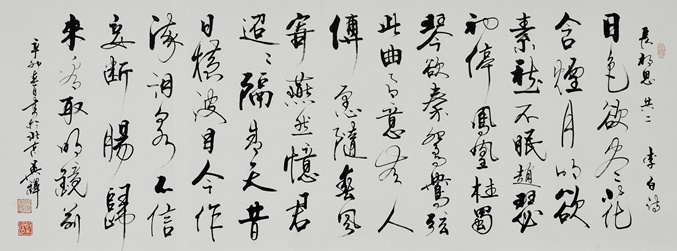 長相思 其二 李白詩
日色欲尽花
含煙月明欲
素愁不眠趙瑟
初停鳳凰柱蜀
琴欲奏鴛鴦弦
此曲有意無人
傳願隨春風
寄燕然憶君
迢迢隔青天昔
日橫波目今作
流泪泉不信
妾斷腸歸
來看取明鏡前
辛卯春月書於北京